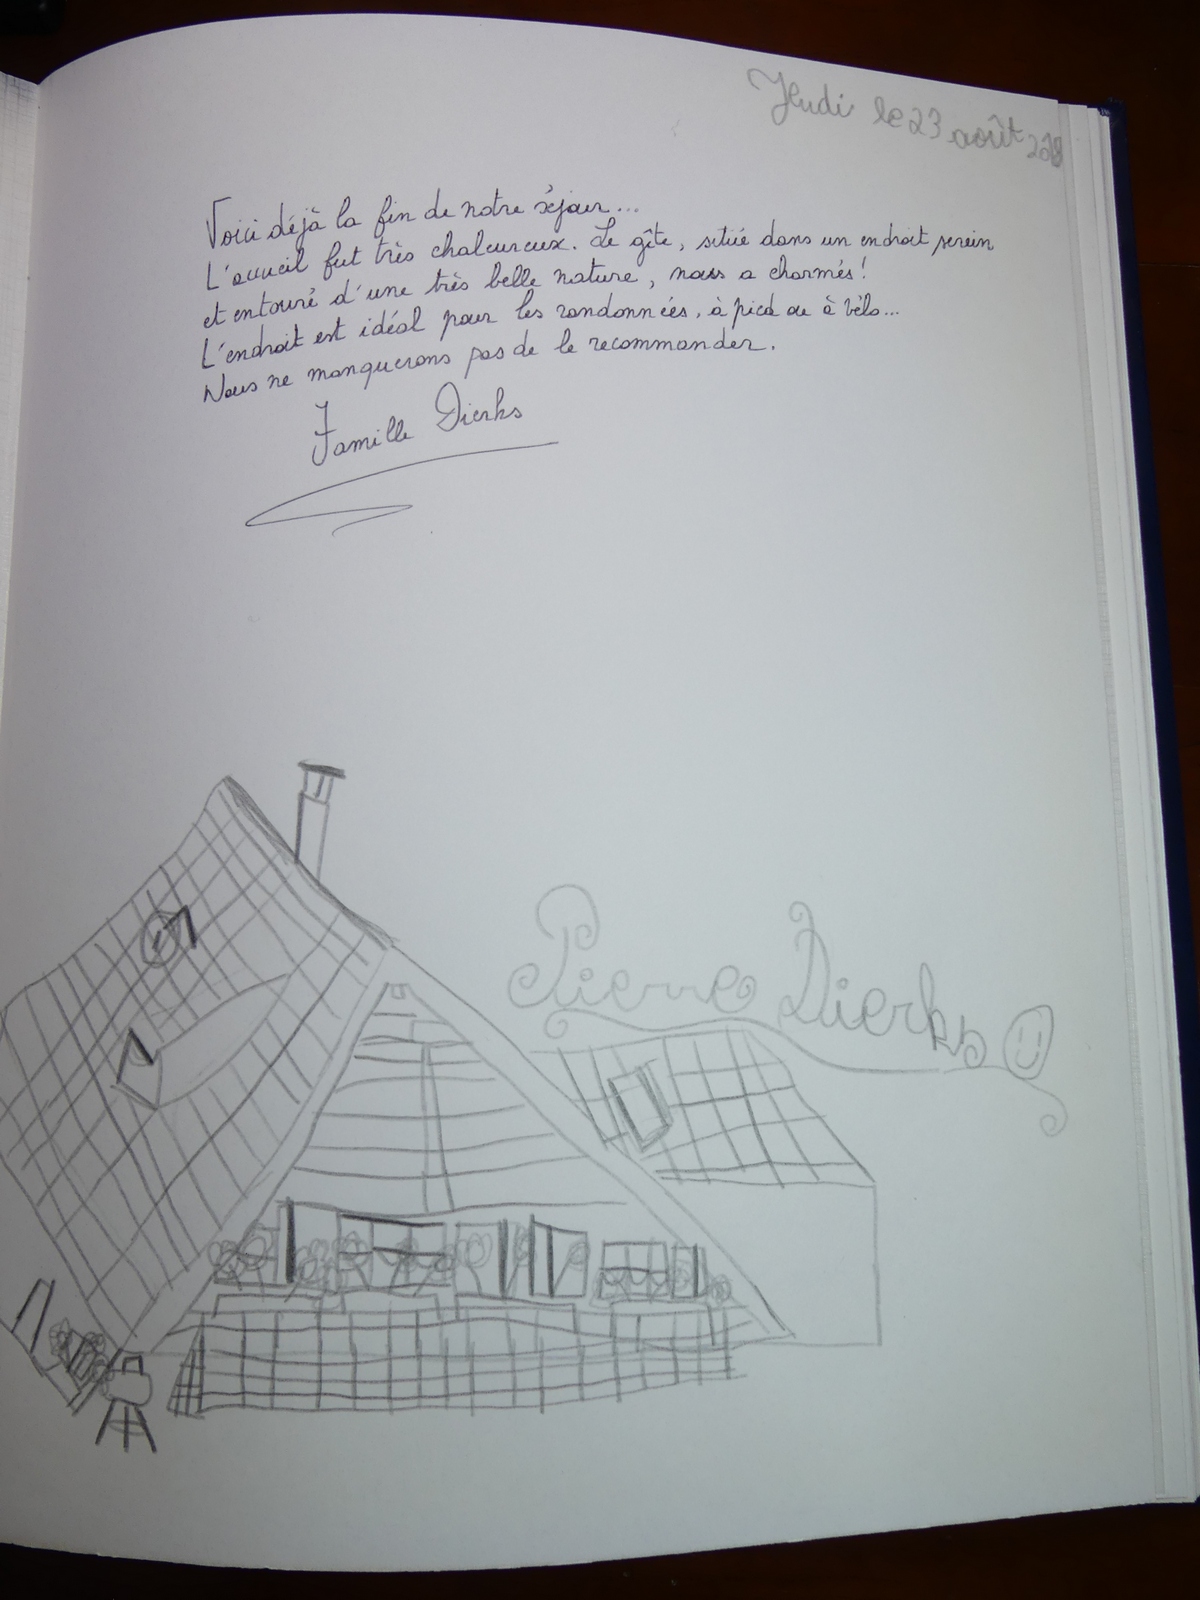 Jeudi le 23 août 2018
Voici déjà la fin de notre séjour...
L'accueil fut très chaleureux. Le gîte, situé dans un endroit serein
et entouré d'une très belle nature, nous a charmés !
L'endroit est idéal pour les randonnées, à pied ou à vélo...
Nous ne manquerons pas de le recommander.
Famille Dierks
Pierre Dierks